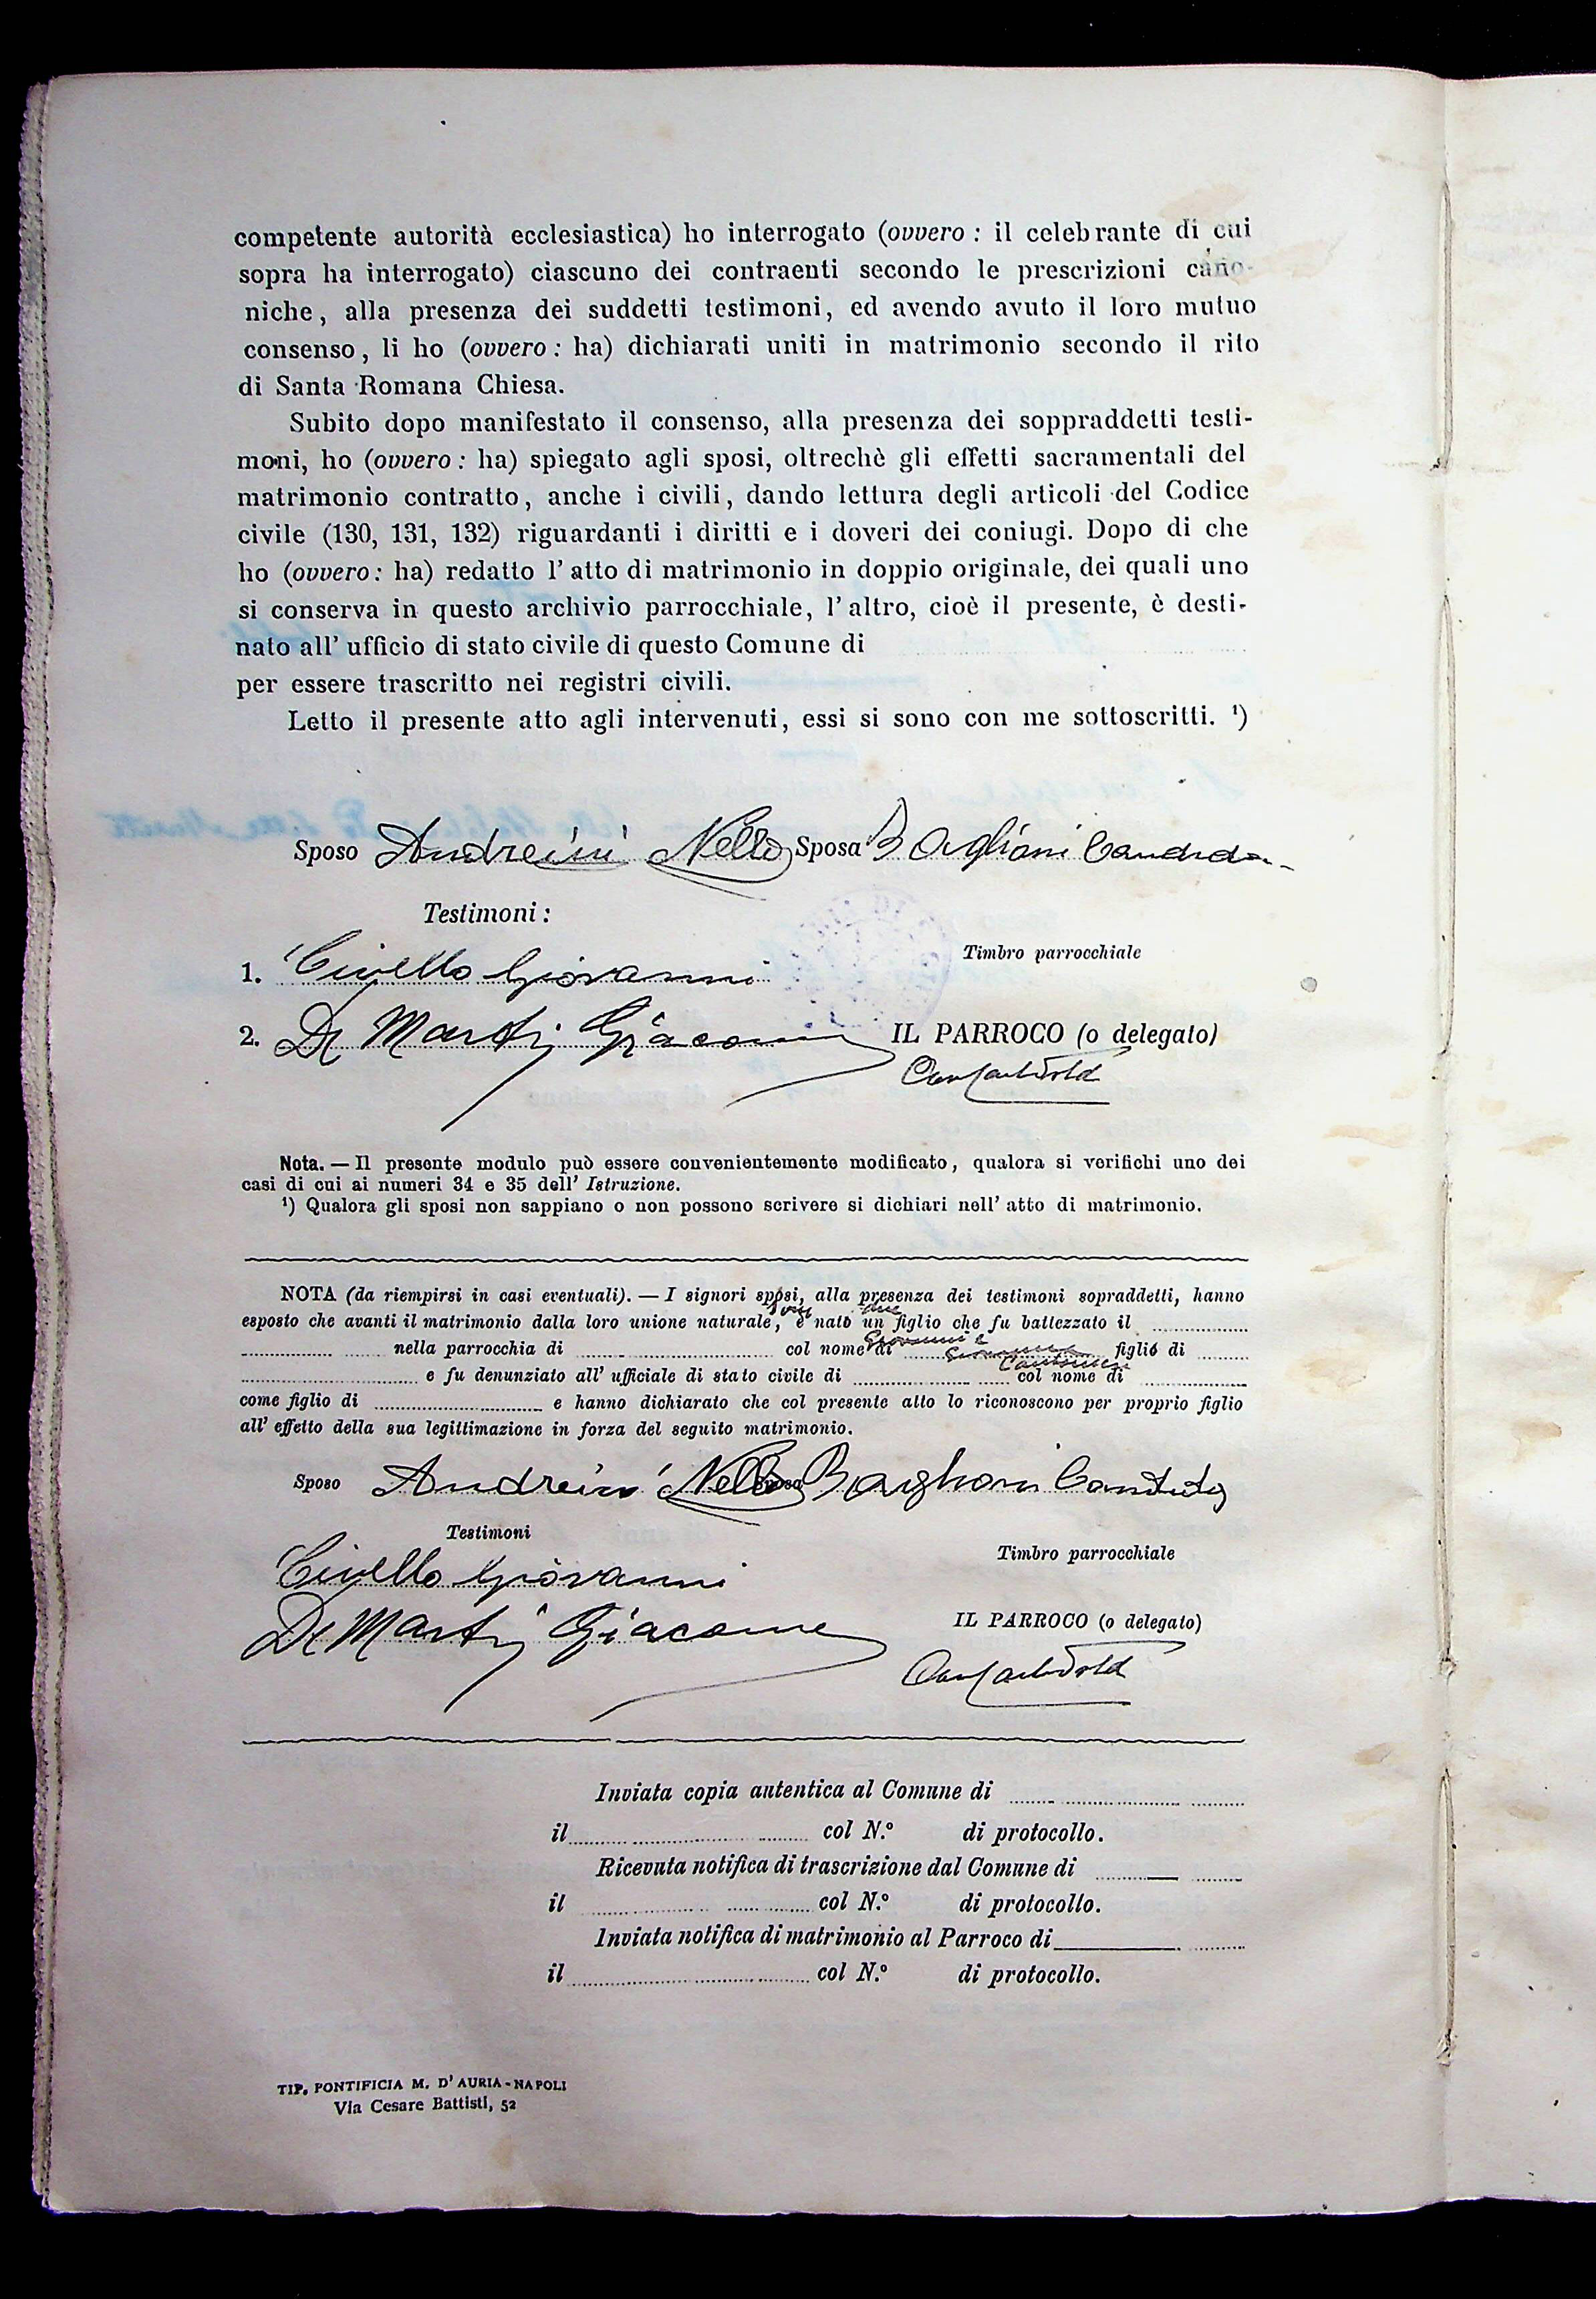 competente autorità ecclesiastica) ho interrogato (ovvero : il celebrante di cui
sopra ha interrogato) ciascuno dei contraenti secondo le prescrizioni cano-
niche, alla presenza dei suddetti testimoni, ed avendo avuto il loro mutuo
consenso, li ho (ovvero : ha) dichiarati uniti in matrimonio secondo il rito
di Santa Romana Chiesa.
Subito dopo manifestato il consenso, alla presenza dei soppraddetti testi-
moni, ho (ovvero : ha) spiegato agli sposi, oltrechè gli effetti sacramentali del
matrimonio contratto, anche i civili, dando lettura degli articoli del Codice
civile (130, 131, 132) riguardanti i diritti e i doveri dei coniugi. Dopo di che
ho (ovvero : ha) redatto l' atto di matrimonio in doppio originale, dei quali uno
si conserva in questo archivio parrocchiale, l' altro, cioè il presente, è desti-
nato all' ufficio di stato civile di questo Comune di
per essere trascritto nei registri civili.
Letto il presente atto agli intervenuti, essi si sono con me sottoscritti. ¹)
Sposo Andreini Nello Sposa Baglioni Candida
Testimoni :
Timbro parrocchiale
1. Civello Giovanni
2. De Marti Giacomo IL PARROCO (o delegato)
Nota. — Il presente modulo può essere convenientemente modificato, qualora si verifichi uno dei
casi di cui ai numeri 34 e 35 dell' Istruzione.
¹) Qualora gli sposi non sappiano o non possono scrivere si dichiari nell' atto di matrimonio.
NOTA (da riempirsi in casi eventuali). — I signori sposi, alla presenza dei testimoni sopraddetti, hanno
due
esposto che avanti il matrimonio dalla loro unione naturale, è nato un figlio che fu battezzato il
Giovanni e
nella parrocchia di col nome di figlio di
e fu denunziato all' ufficiale di stato civile di col nome di
come figlio di e hanno dichiarato che col presente atto lo riconoscono per proprio figlio
all' effetto della sua legittimazione in forza del seguito matrimonio.
Sposo Andreini Nello Sposa Baglioni Candida
Testimoni
Timbro parrocchiale
Civello Giovanni
De Marti Giacomo
IL PARROCO (o delegato)
Inviata copia autentica al Comune di
il col N.º di protocollo.
Ricevuta notifica di trascrizione dal Comune di
il col N.º di protocollo.
Inviata notifica di matrimonio al Parroco di
il col N.º di protocollo.
TIP. PONTIFICIA M. D' AURIA - NAPOLI
Via Cesare Battisti, 52